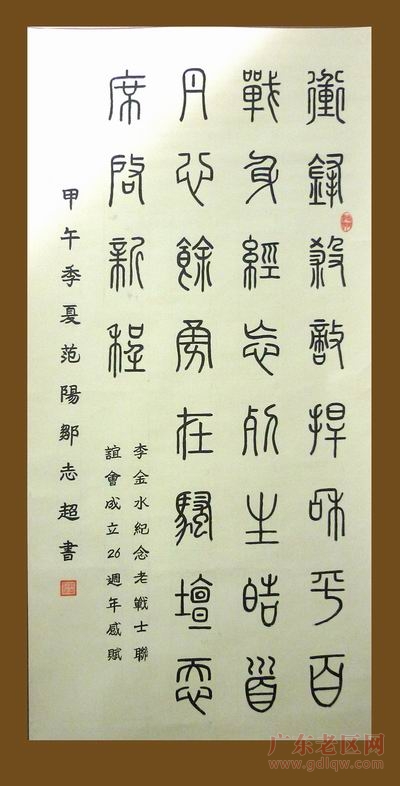 衝鋒殺敵捍和平百
戰身經忘死生皓首
丹心餘勇在騷壇忝
席启新程
李金水紀念老戰士聯
誼會成立26週年感賦
甲午季夏范陽鄒志超書
广东老区网
www.gdlqw.com